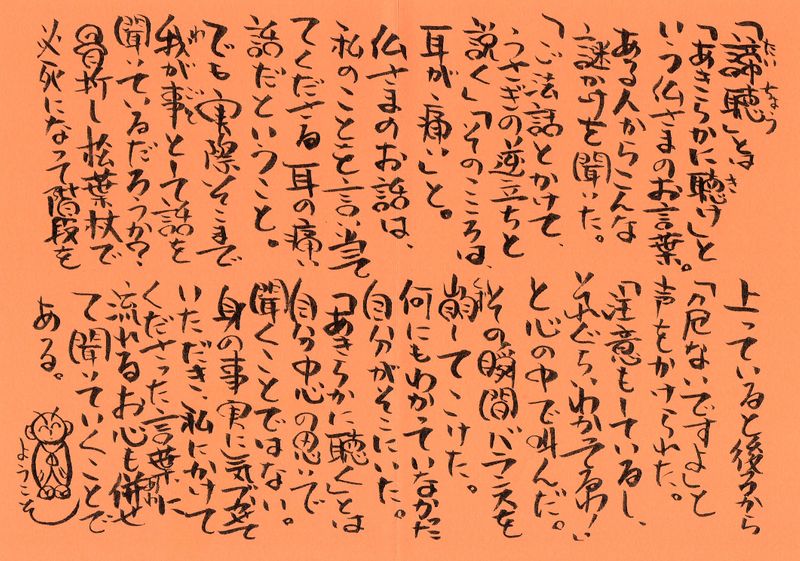 「諦聴」とは
「あきらかに聴け」と
いう仏さまのお言葉。
ある人からこんな
謎かけを聞いた。
「ご法話とかけて、
うさぎの逆立ちと
説く」「そのこころは、
耳が痛い」と。
仏さまのお話は、
私のことを言い当て
てくださる耳の痛い
話だということ。
でも実際そこまで
我が事として話を
聞いているだろうか？
骨折し松葉杖で
必死になって階段を
上っていると後ろから
「危ないですよ」と
声をかけられた。
「注意もしているし、
それぐらいわかってるわ！」
と心の中で叫んだ。
その瞬間バランスを
崩してこけた。
何にもわかっていなかった
自分がそこにいた。
「あきらかに聴く」とは
自分中心の思いで
聞くことではない。
身の事実に気づかせて
いただき、私にかけて
くださった言葉に
流れるお心も併せ
て聞いていくことで
ある。
ようこそ